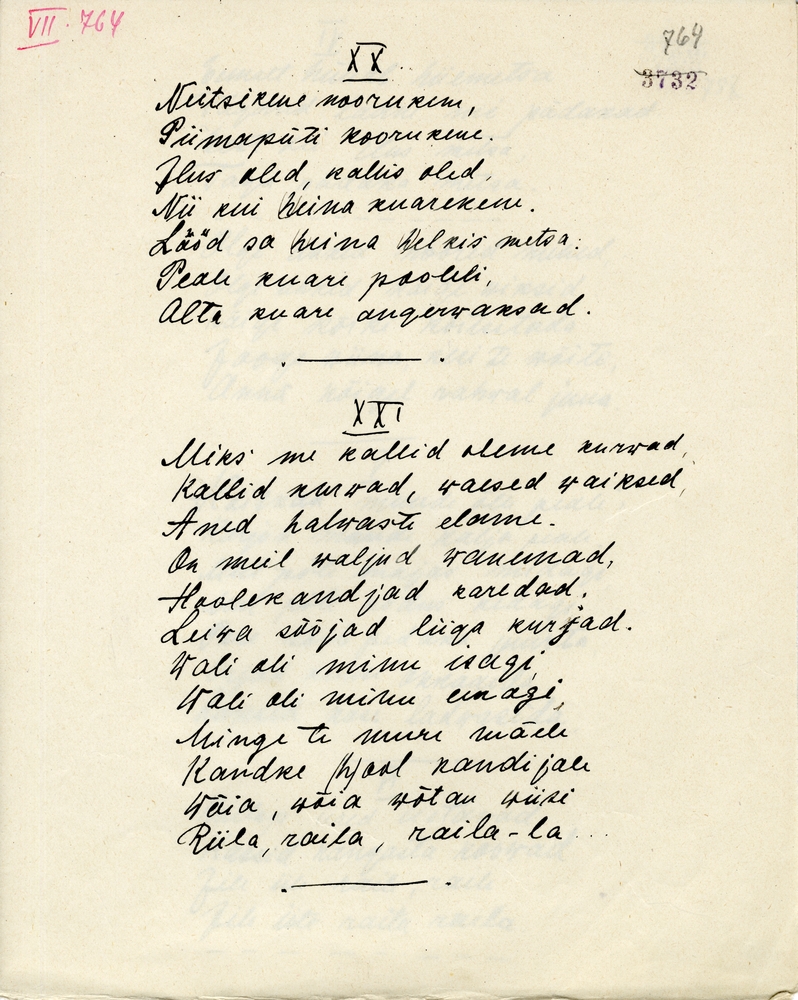 VII. 764
764
3732
XX
Neitsikene noorukene,
Piimapüti koorukene.
Ilus oled, kallis oled,
Nii kui (h)eina kuarekene.
Lööd sa (h)eina (h)elkis metsa:
Peale kuare pooleli,
Alta kuare angerwaksad.
XXI
Miks me kallid oleme kurwad,
Kallid kurwad, waesed waiksed,
Aned halwaste elame.
On meil waljud wanemad,
Hoolekandjad karedad,
Leiwa sööjad liiga kurjad.
Wali oli minu isagi,
Wali oli minu emagi,
Minge te mure mäele
Kandke (h)ool kandijale
Wõia, wõia wõtan wiisi
Riila, raila, raila-la...